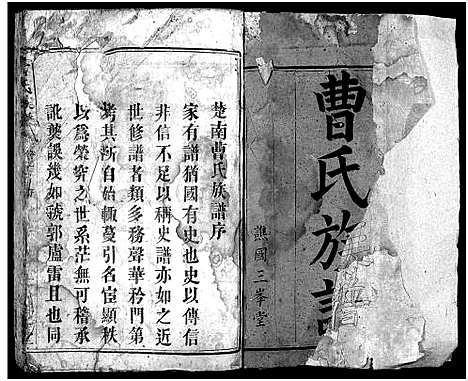 曹氏族譜
譙國三峯堂
楚南曹氏族譜序
家有譜猶國有史也史以傳信
非信不足以稱史譜亦如之近
世修譜者類多務聲華矜門第
考其所自始輒蔓引名宦顯秩
以為榮究之世系茫無可稽承
訛襲誤幾如虢郭盧雷且也同